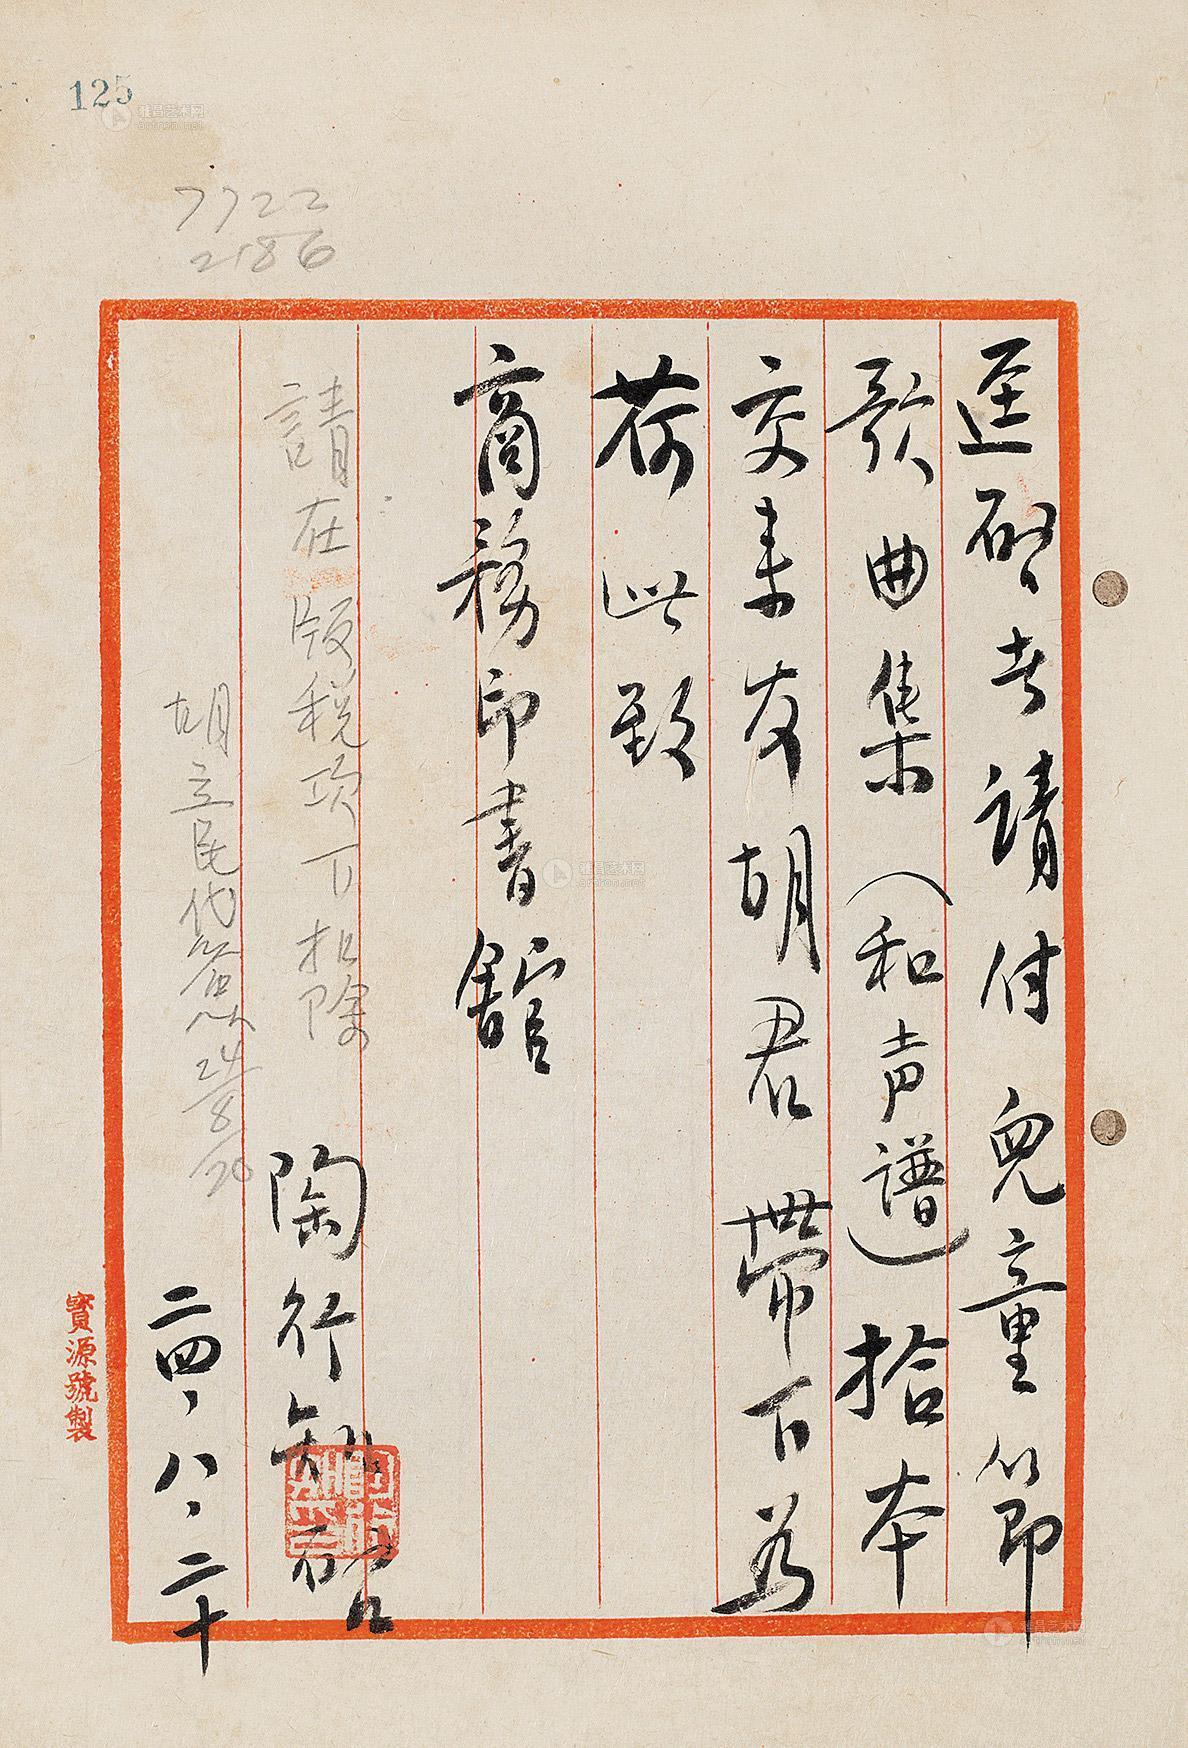 125
雅昌艺术网
artron.net
7722
2186
逕啓者請付兒童節
歌曲集(和声譜)拾本
交来友胡君帶下為
荷此致
商務印書館
請在版税項下扣除
陶行知 啓
胡立民代簽 24/8/20
二四、八、二十
寶源號製